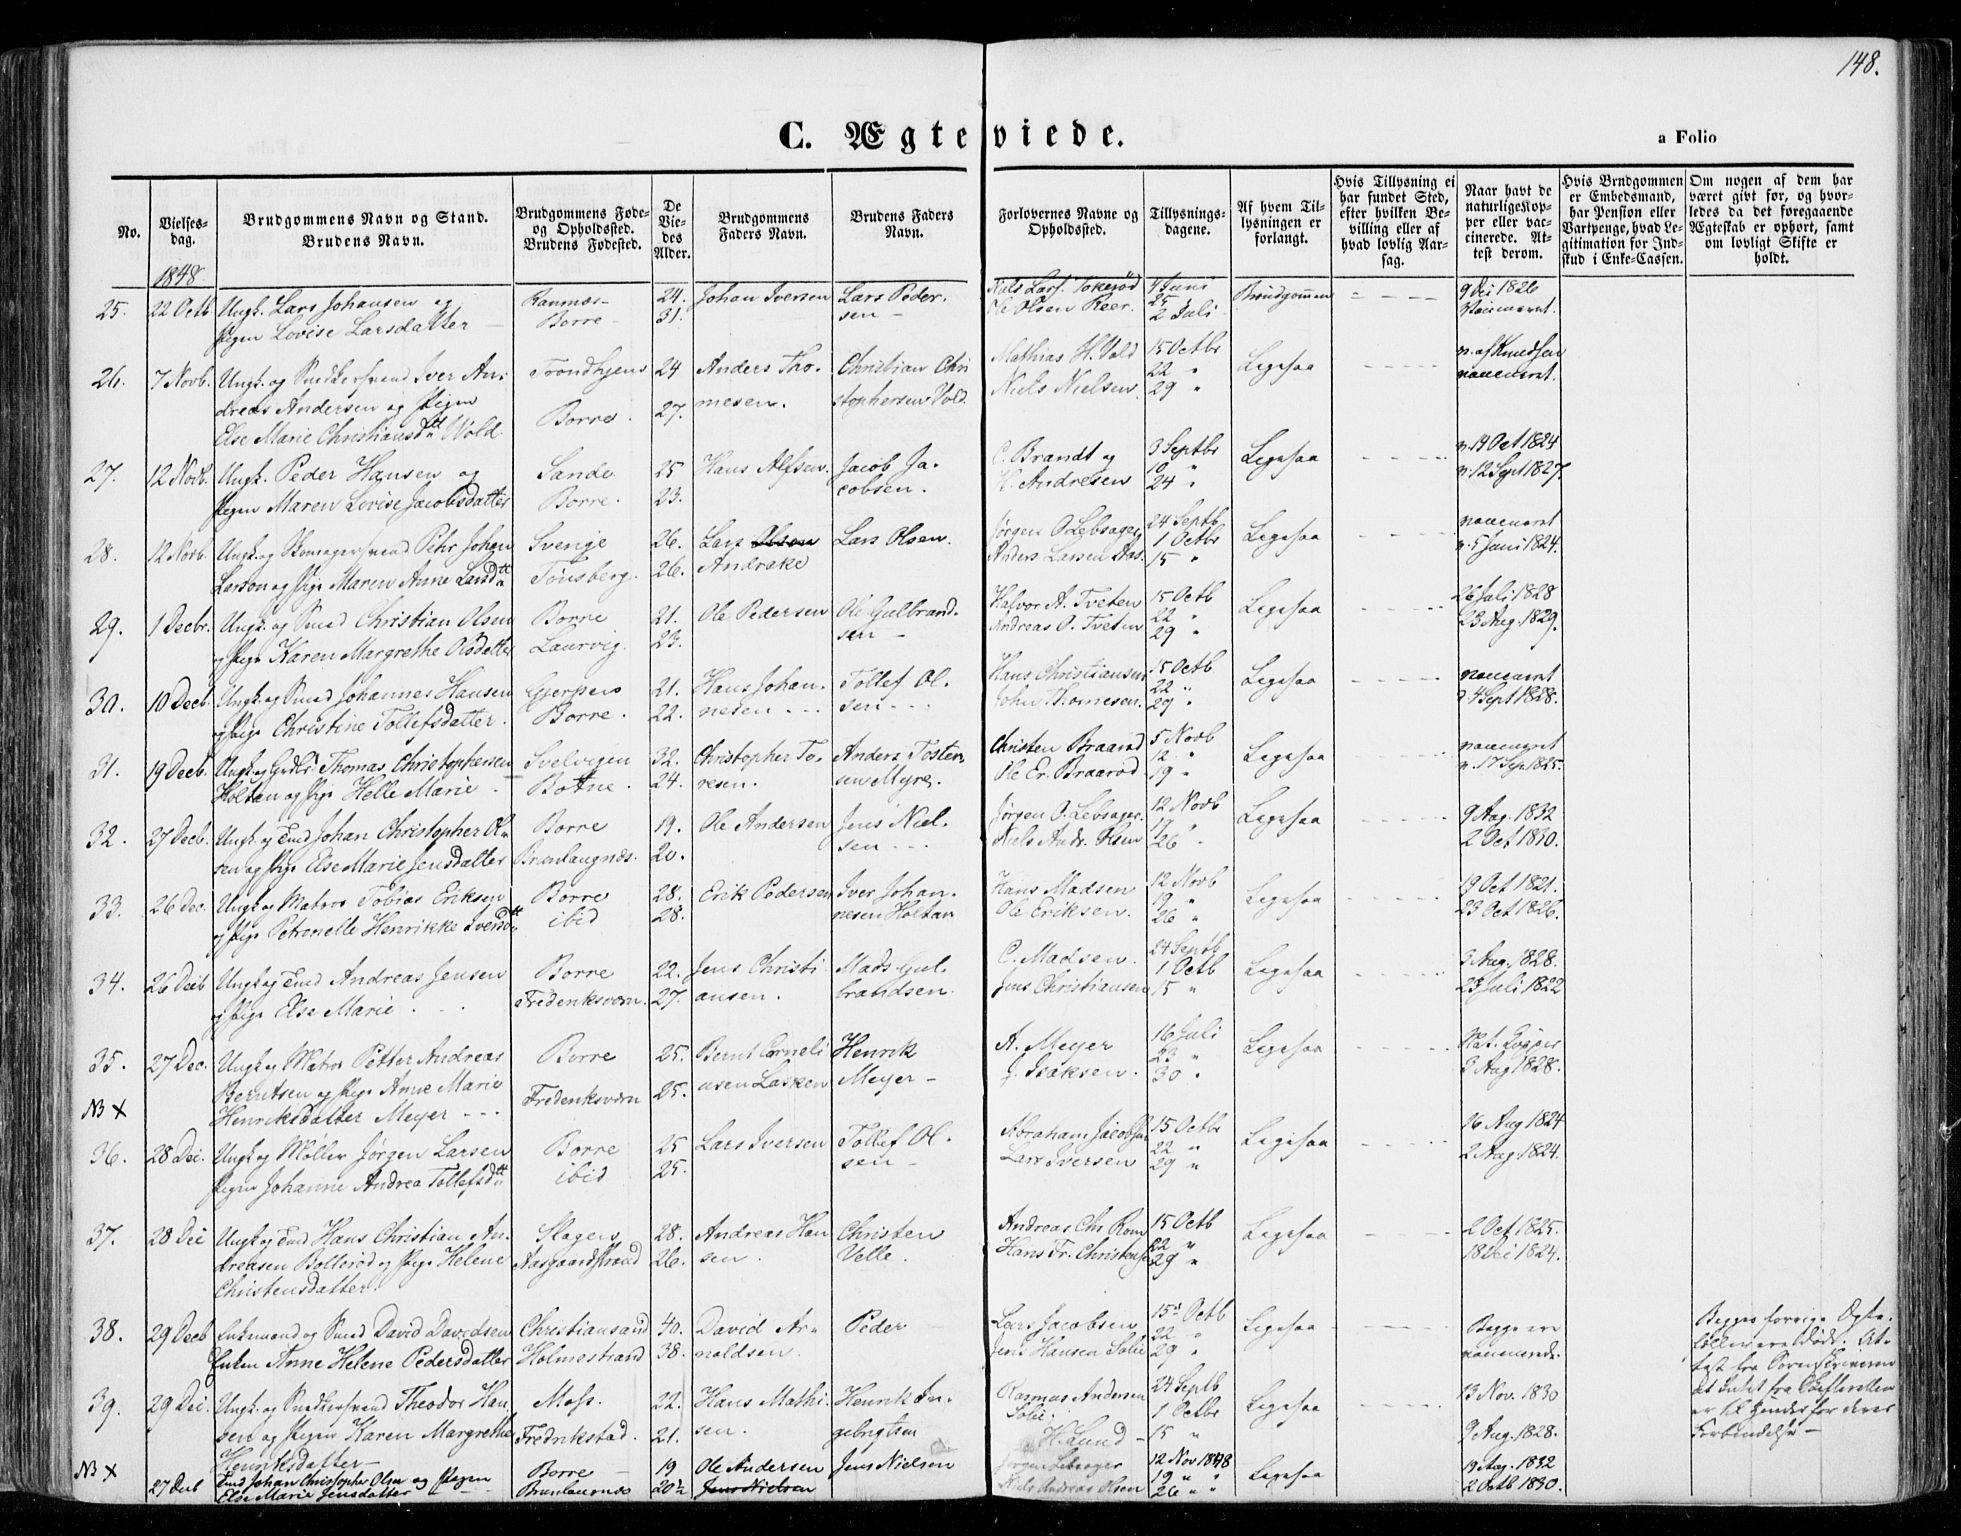 148.
C. Ægteviede.
a Folio
No.
Vielses-dag.
Brudgommens Navn og Stand. Brudens Navn.
Brudgommens Føde- og Opholdssted. Brudens Fødested.
De Viedes Alder.
Brudgommens Faders Navn.
Brudens Faders Navn.
Forlovernes Navne og Opholdssted.
Tillysnings-dagene.
Af hvem Tillysningen er forlangt.
Hvis Tillysning ei har fundet Sted, efter hvilken Bevilling eller af hvad lovlig Aarsag.
Naar havt de naturlige Kopper eller vaccinerede. Attest derom.
Hvis Brudgommen er Embedsmand, har Pension eller Vartpenge, hvad Legitimation for Indskud i Enke-Cassen.
Om nogen af dem har været givt før, og hvorledes da det foregaaende Ægteskab er ophørt, samt om lovligt Skifte er holdt.
1848
25. 22 Octb Ungk. Lars Johansen og Pigen Lovise Larsdatter — Borre 24. 31. Johan Iversen Lars Pedersen Ole Olsen 4 Juni 25 2 Juli Brudgommen 9 Dei 1826
26. 7 Novb. Ungk. og Snedkersvend Iver Andreas Andersen og Pigen Else Marie Christiansdtt Wold. Trondhjem Borre. 24 27. Anders Thomesen. Christian Christophersen Vold Mathias H. Vold Niels Nielsen 15 Octbr 22 " 29 " Ligesaa
27. 12 Novb. Ungk. Peder Hansen og Pigen Maren Lovise Jacobsdatter Sande Borre. 25 23. Hans Alfsen. Jacob Jacobsen. C. Brandt og H. Andresen 3 Septbr 10 " 24 " Ligesaa v. 19 Oct 1824 v. 12 Sept 1827.
28. 12 Novb. Ungk. og Skomagersvend Pehr Johan Larson og Pige Maren Anne Larsdtt Sverige Tønsberg. 26. 26. Lars Olsen Andrake Lars Olsen. Jørgen O. Lebsager, Anders Larsen Aas. 24 Septb 1 Octbr 15 " Ligesaa vaccineret v. 5 Juni 1824.
29. 1 Decbr. Ungk. og Smed Christian Olsen og Pige Karen Margrethe Olsdatter Borre Laurvig. 21. 23. Ole Pedersen Ole Gulbrandsen — Halvor A. Tveten Andreas O. Tveten 15 Octb 22 " 29 " Ligesaa 26 Juli 1828 23 Aug. 1829.
30. 10 Decb. Ungk. og Smed Johannes Hansen og Pige Christine Tollefsdatter. Gjerpen Borre. 21. 22. Hans Johannesen --- Tollef Olsen --- Hans Christiansen John Thomesen. 15 Octb 22 " 29 " Ligesaa vaccineret 4 Sept 1828.
31. 19 Decb. Ungk. og Thomas Christophersen Holtan og Pige Helle Marie. Svelvigen Botne. 32. 24. Christopher Toresen. Anders Tostensen Myre. Christen Braarød Ole Er. Braarød 5 Novb 12 " 19 " Ligesaa vaccineret v. 17 Sep 1825.
32. 27 Decb. Ungk. og Johan Christopher Olsen og Pige Else Marie Jensdatter Borre Brunlaugnæs. 19. 20. Ole Andersen Jens Nielsen --- Jørgen O. Lebsager. Niels Andr. Olsen 12 Novb 19 " 26 " Ligesaa 9 Aug. 1832 2 Oct 1830.
33. 26 Dec. Ungk. og Matros Tobias Eriksen og Pige Petronelle Henrikke Iversdtt Borre ibid 28. 28. Erik Pedersen Iver Johannesen Holtan Hans Madsen Ole Eriksen. 12 Novb 19 " 26 " Ligesaa 19 Oct 1821. 23 Oct 1826.
34. 26 Decb Ungk. og Andreas Jensen og Pige Else Marie . . Borre Frederiksværn. 22. 27. Jens Christiansen. Mads Gulbrandsen. C. Madsen. Jens Christiansen 24 Septb 1 Octb 15 " Ligesaa 3 Aug. 1828. 23 Juli 1822
35. NB X 27 Dec. Ungk. og Matros Petter Andreas Berntsen og Pige Anne Marie Henriksdatter Meyer --- Borre Frederiksværn 25. 25. Bernt Corneliusen Lasken Henrik Meyer — A. Meyer J. Isaksen. 16 Juli 23 " 30 " Ligesaa Nat. Kopper 3 Aug 1828.
36. 28 Dei. Ungk. og Møller Jørgen Larsen Pigen Johanne Andrea Tollefsdtt Borre ibid 25 25. Lars Iversen Tollef Olsen — Abraham Jacobsen Lars Iversen 15 Octbr 22 " 29 " Ligesaa 16 Aug 1824 2 Aug. 1824.
37. 28 Dei Ungk. og Hans Christian Andreasen Bollerød og Pige Helene Christensdatter. Slagen Aasgaardstrand 28. 26. Andreas Hansen. Christen Velle. Andreas Chr. Rom Hans Fr. Christensen 15 Octb 22 " 29 " Ligesaa 2 Oct 1825. 18 Dei 1824.
38. 29 Decb Enkemand og Smed David Davidsen Enken Anne Helene Pedersdatter Christiansand Holmestrand 40. 38. David Arnoldsen. Peder Lars Jacobsen Jens Hansen Solie 15 Octb 22 " 29 " Ligesaa Begge ere vaccinerede. Begges forrige Ægtefæller ere døde. Attest fra Sorenskriveren at Intet fra Skifteretten er til Hinder for deres Forbindelse —
39. 29 Dei. Ungk. og Snedkersvend Theodor Hansen og Pigen Karen Margrethe Henriksdatter — Moss. Fredrikstad. 22. 21. Hans Mathisen. Henrik Ingebrigtsen Rasmus Andersen Solie. H. Lund — 24 Septb 1 Octbr 15 " Ligesaa 13 Nov. 1830 9 Aug. 1828.
NB X 27 Decb Johan Christopher Olsen og Pigen Else Marie Jensdatter Borre — Brunlaugnæs 19 20½ Ole Andersen Jens Nielsen Jens Nielsen Jørgen Lebsager Niels Andreas Olsen 12 Nov 1848 19 " " 26 " " Ligesaa 19 Aug. 1832 2 Octb 1830.